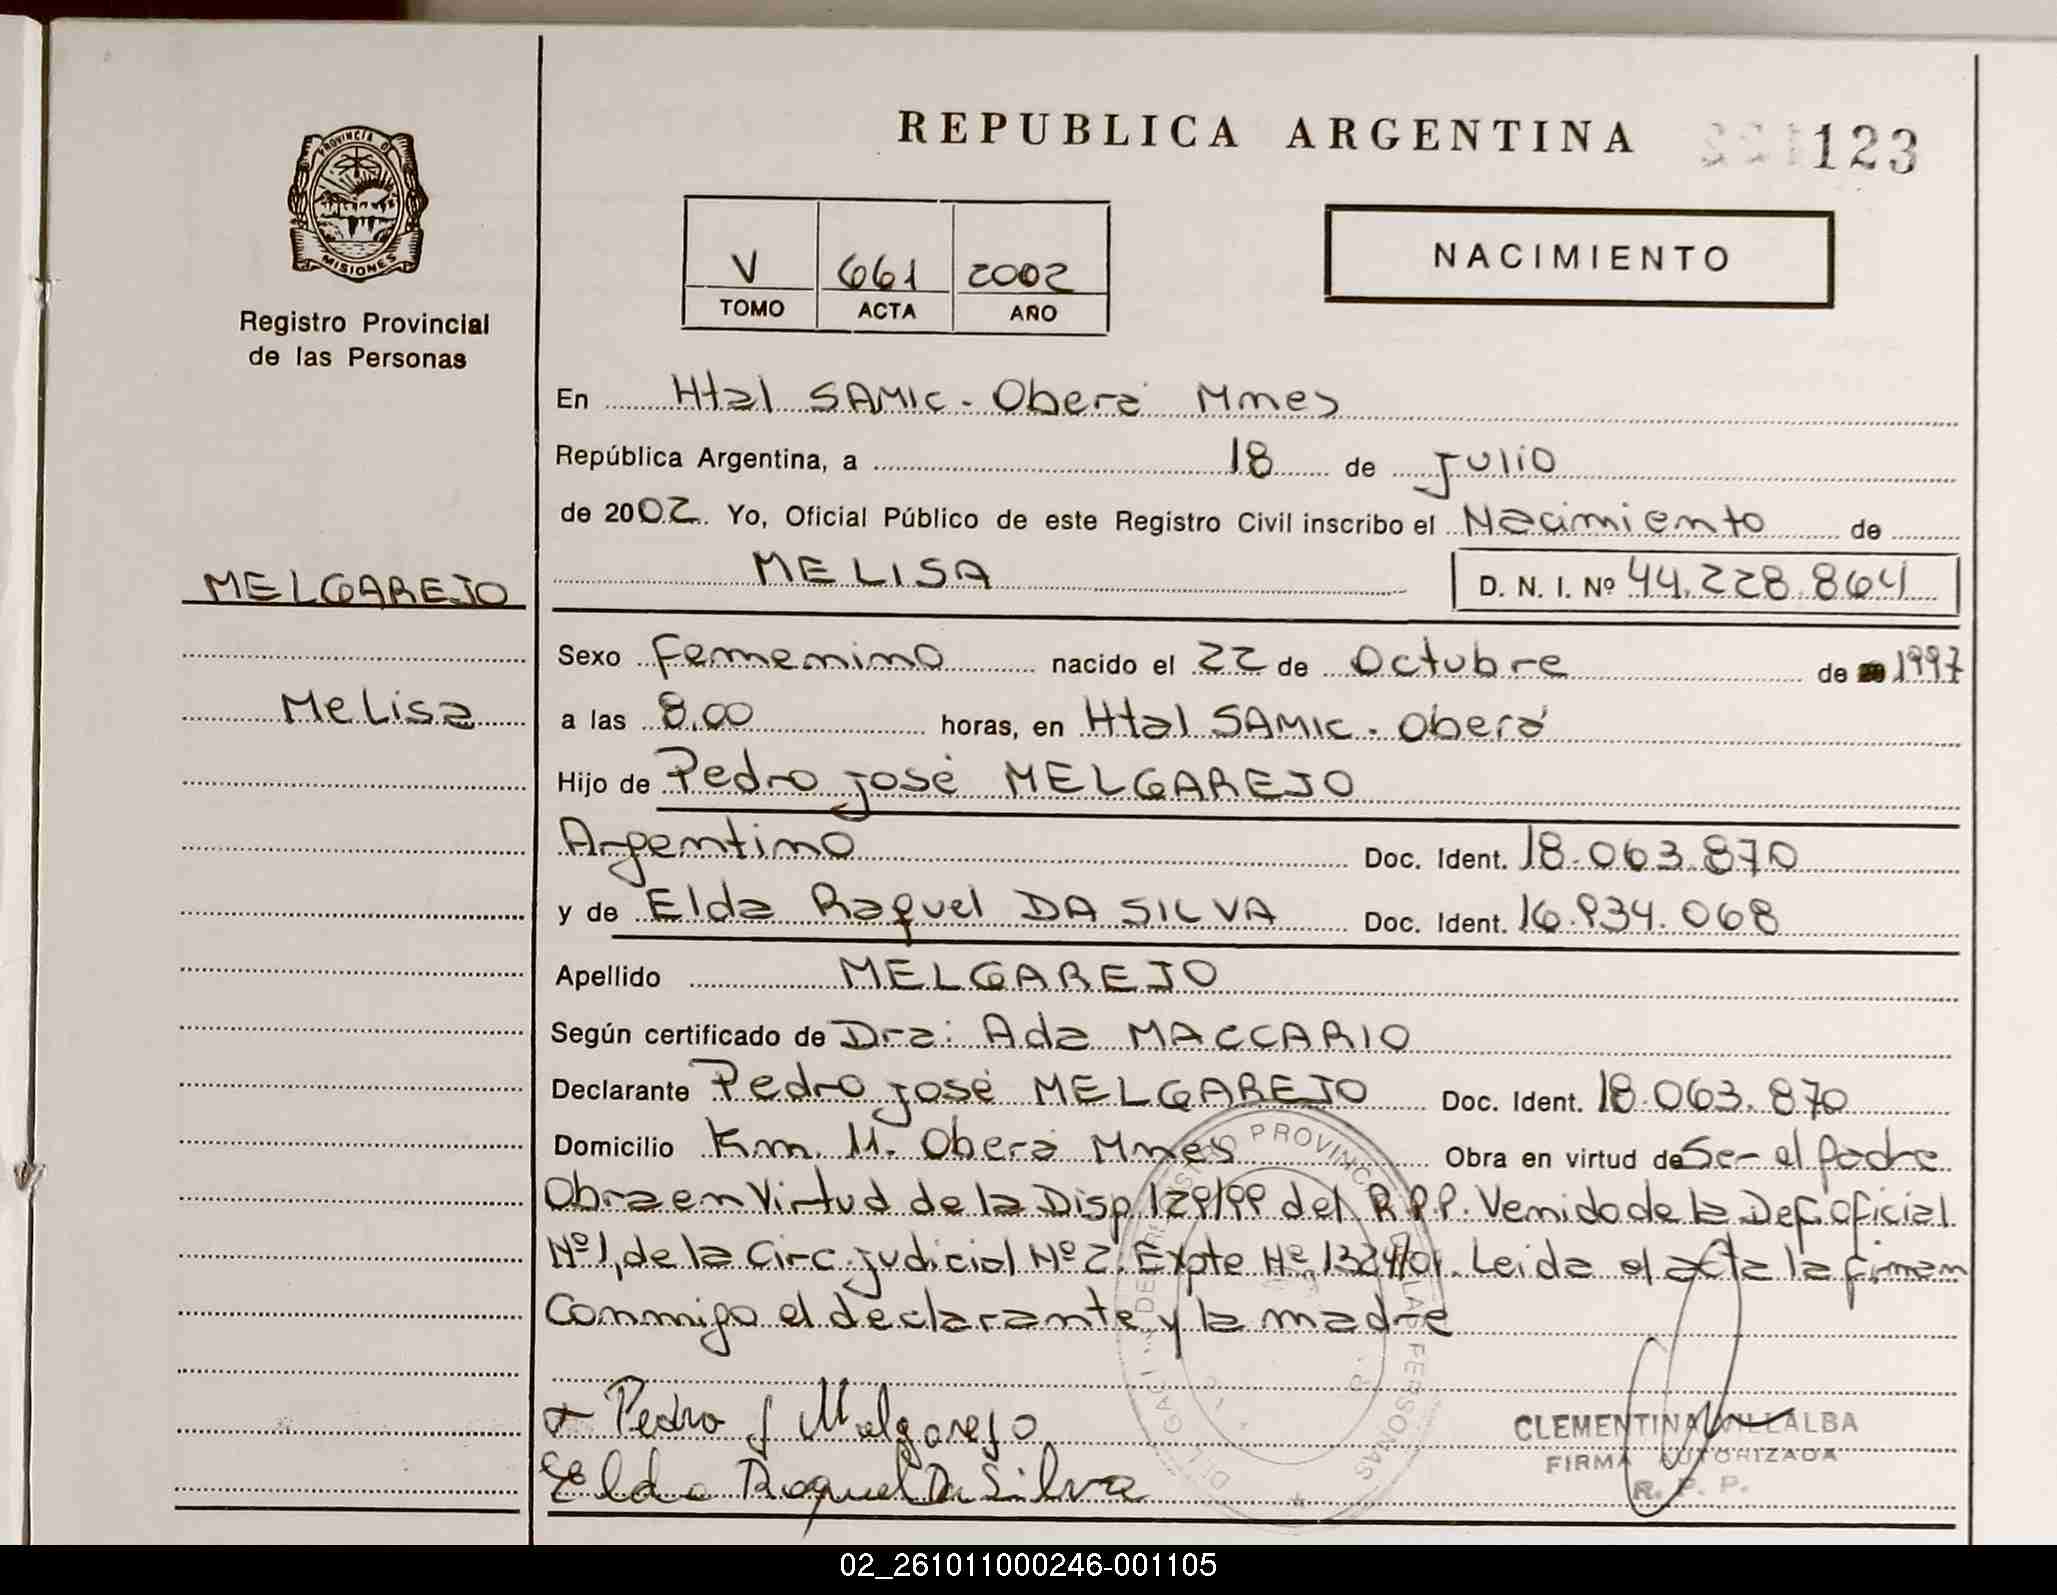 REPUBLICA ARGENTINA
123
PROVINCIA D
MISIONES
Registro Provincial
de las Personas
V 661 2002
TOMO ACTA AÑO
NACIMIENTO
En Htal SAMIC - Oberá Mnes
República Argentina, a 18 de Julio
de 2002. Yo, Oficial Público de este Registro Civil inscribo el Nacimiento de
MELGAREJO
MELISA D. N. I. Nº 44.228.864
Sexo Femenino nacido el 22 de Octubre de 1997
Melisa
a las 8.00 horas, en Htal SAMIC - Oberá
Hijo de Pedro José MELGAREJO
Argentino Doc. Ident. 18.063.870
y de Elda Raquel DA SILVA Doc. Ident. 16.934.068
Apellido MELGAREJO
Según certificado de Dra: Ada MACCARIO
Declarante Pedro José MELGAREJO Doc. Ident. 18.063.870
Domicilio Km. 11. Oberá Mnes Obra en virtud de Ser el padre
Obra en Virtud de la Disp 129/99 del R.P.P. Venido de la Def. oficial
Nº1, de la Circ. Judicial Nº2. Expte Nº 1324/01. Leida el acta la firman
Conmigo el declarante y la madre
Pedro J Melgarejo
Elda Raquel Da Silva
CLEMENTINA VILLALBA
FIRMA AUTORIZADA
R. P. P.
PROVINCI LAS PERSONAS
02_261011000246-001105